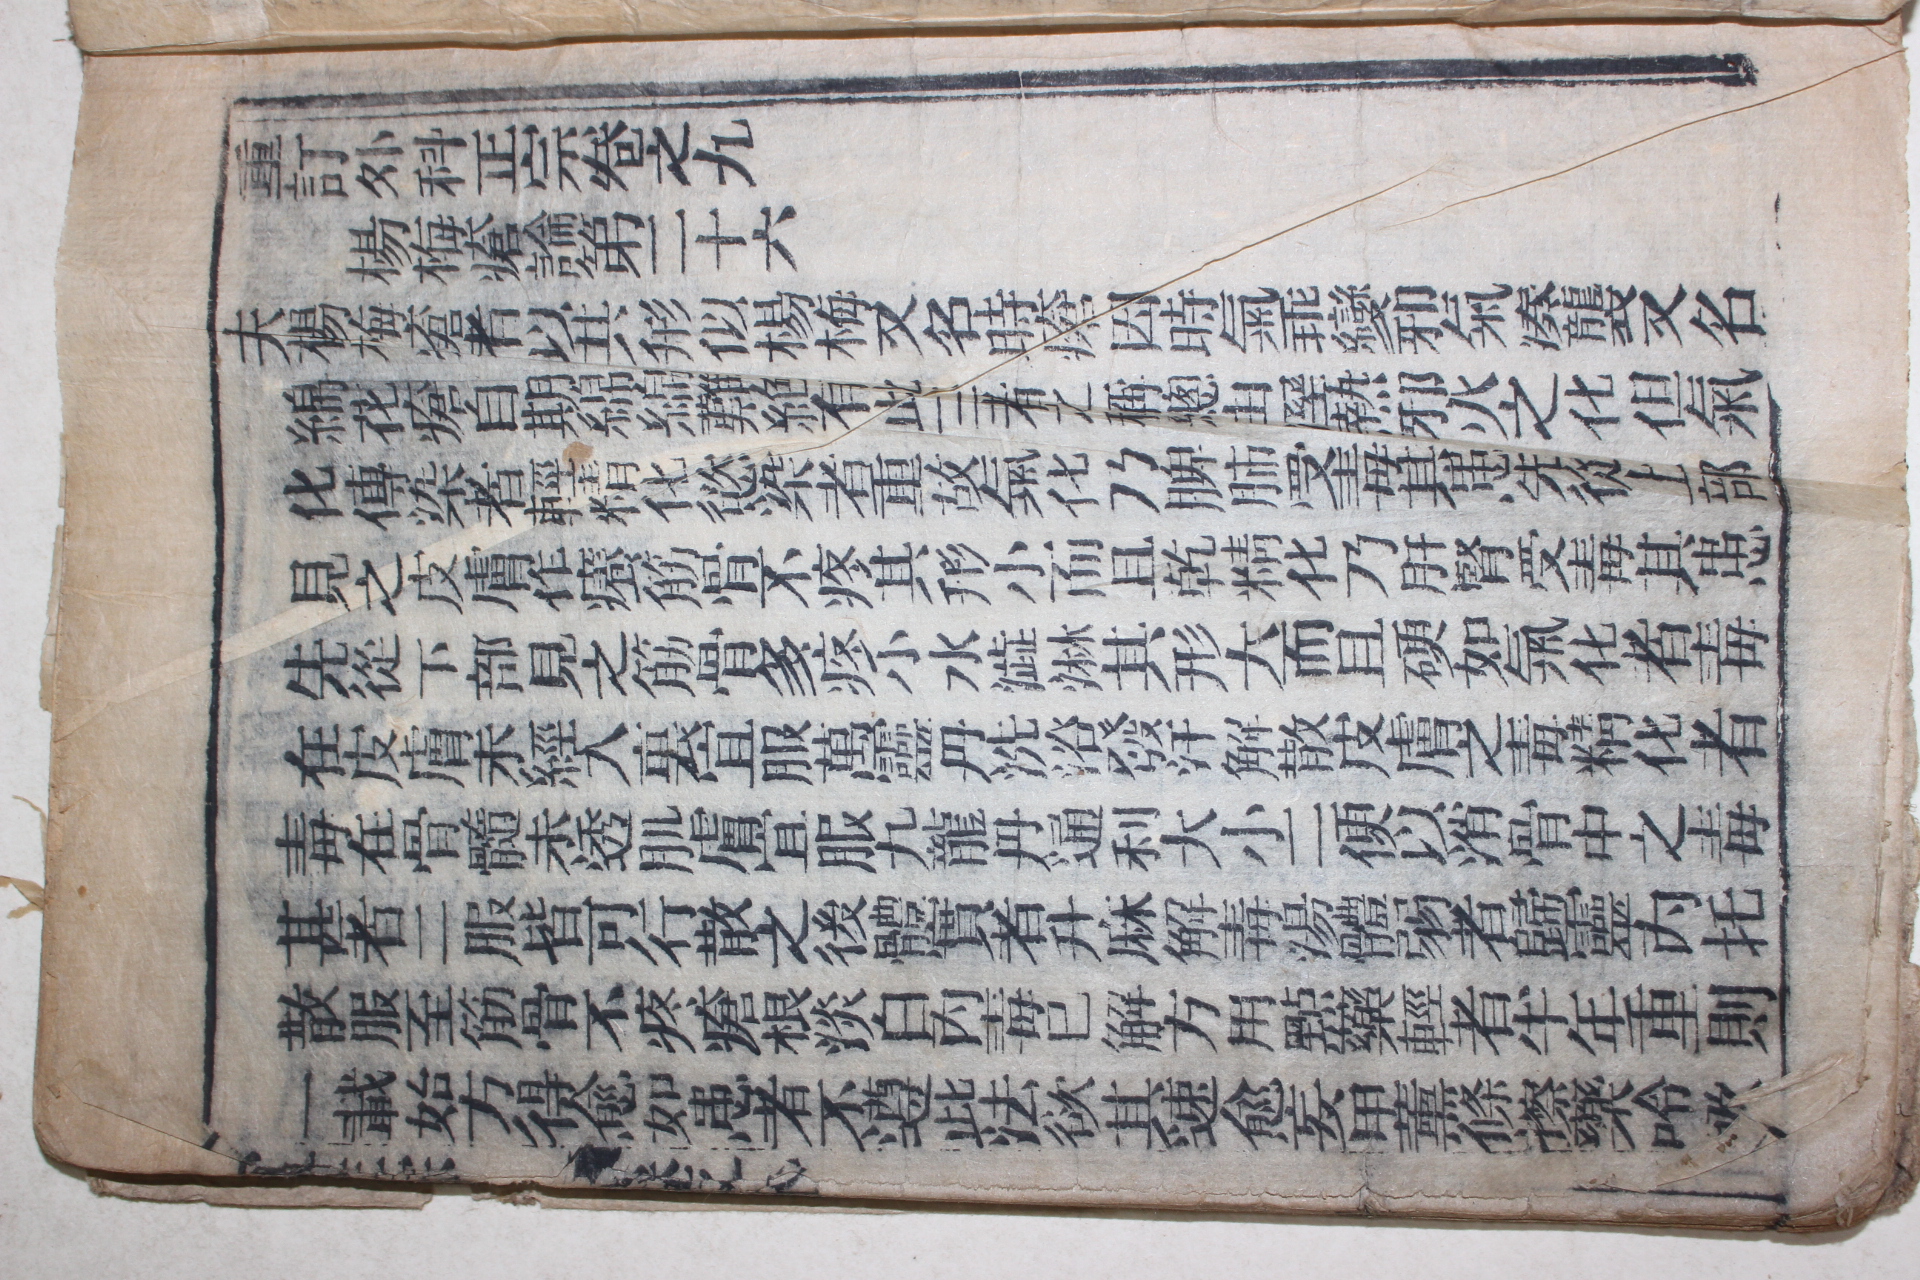 重訂外科正宗卷之九
楊梅瘡論第二十六
夫楊梅瘡者以其形似楊梅又名時瘡因時氣乖變邪氣湊襲又名
綿花瘡自期綿綿難絶有此三者之稱總由濕熱邪火之化但氣
化傳染者輕精化慾染者重故氣化乃脾肺受毒其患先從上部
見之皮膚作癢筋骨不疼其形小而且乾精化乃肝腎受毒其患
先從下部見之筋骨多疼小水澁淋其形大而且硬如氣化者毒
在皮膚未經入裏宜服萬靈丹洗浴發汗解散皮膚之毒精化者
毒在骨髓未透肌膚宜服九龍丹通利大小二便以消骨中之毒
甚者二服皆可行散之後體實者升麻解毒湯體弱者歸靈內托
散服至筋骨不疼瘡根淡白內毒已解方用點藥輕者半年重則
一載始方得愈如患者不遵此法欲其速愈妄用薰條擦藥哈吸